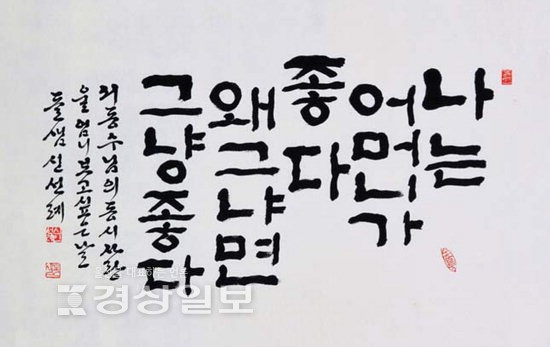 나는
어머니가
좋다
왜그냐면
그냥좋다
님의 동시사랑
울 엄니 보고싶은 날
들샘 신선례
경상일보